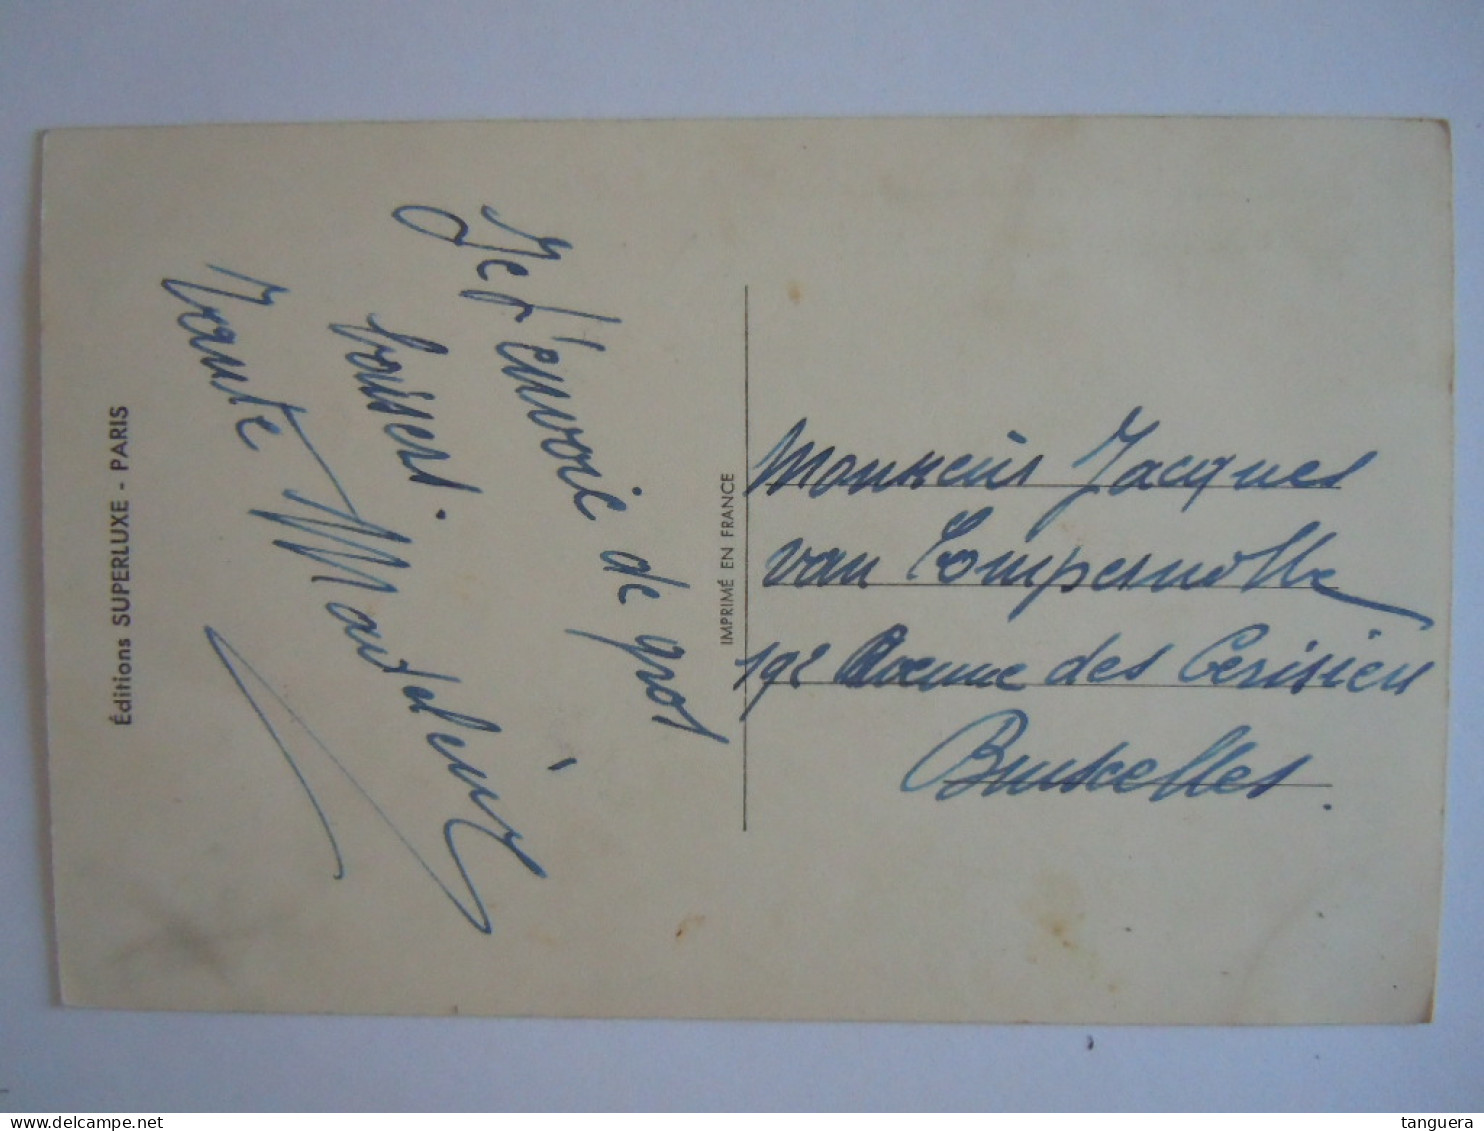 Éditions SUPERLUXE - PARIS
Je t'envoie de gros
baisers.
Tante Madeleine
IMPRIMÉ EN FRANCE
Monsieur Jacques
van Compernolle
192 Avenue des Cerisiers
Bruxelles.
tanguera
www.delcampe.net